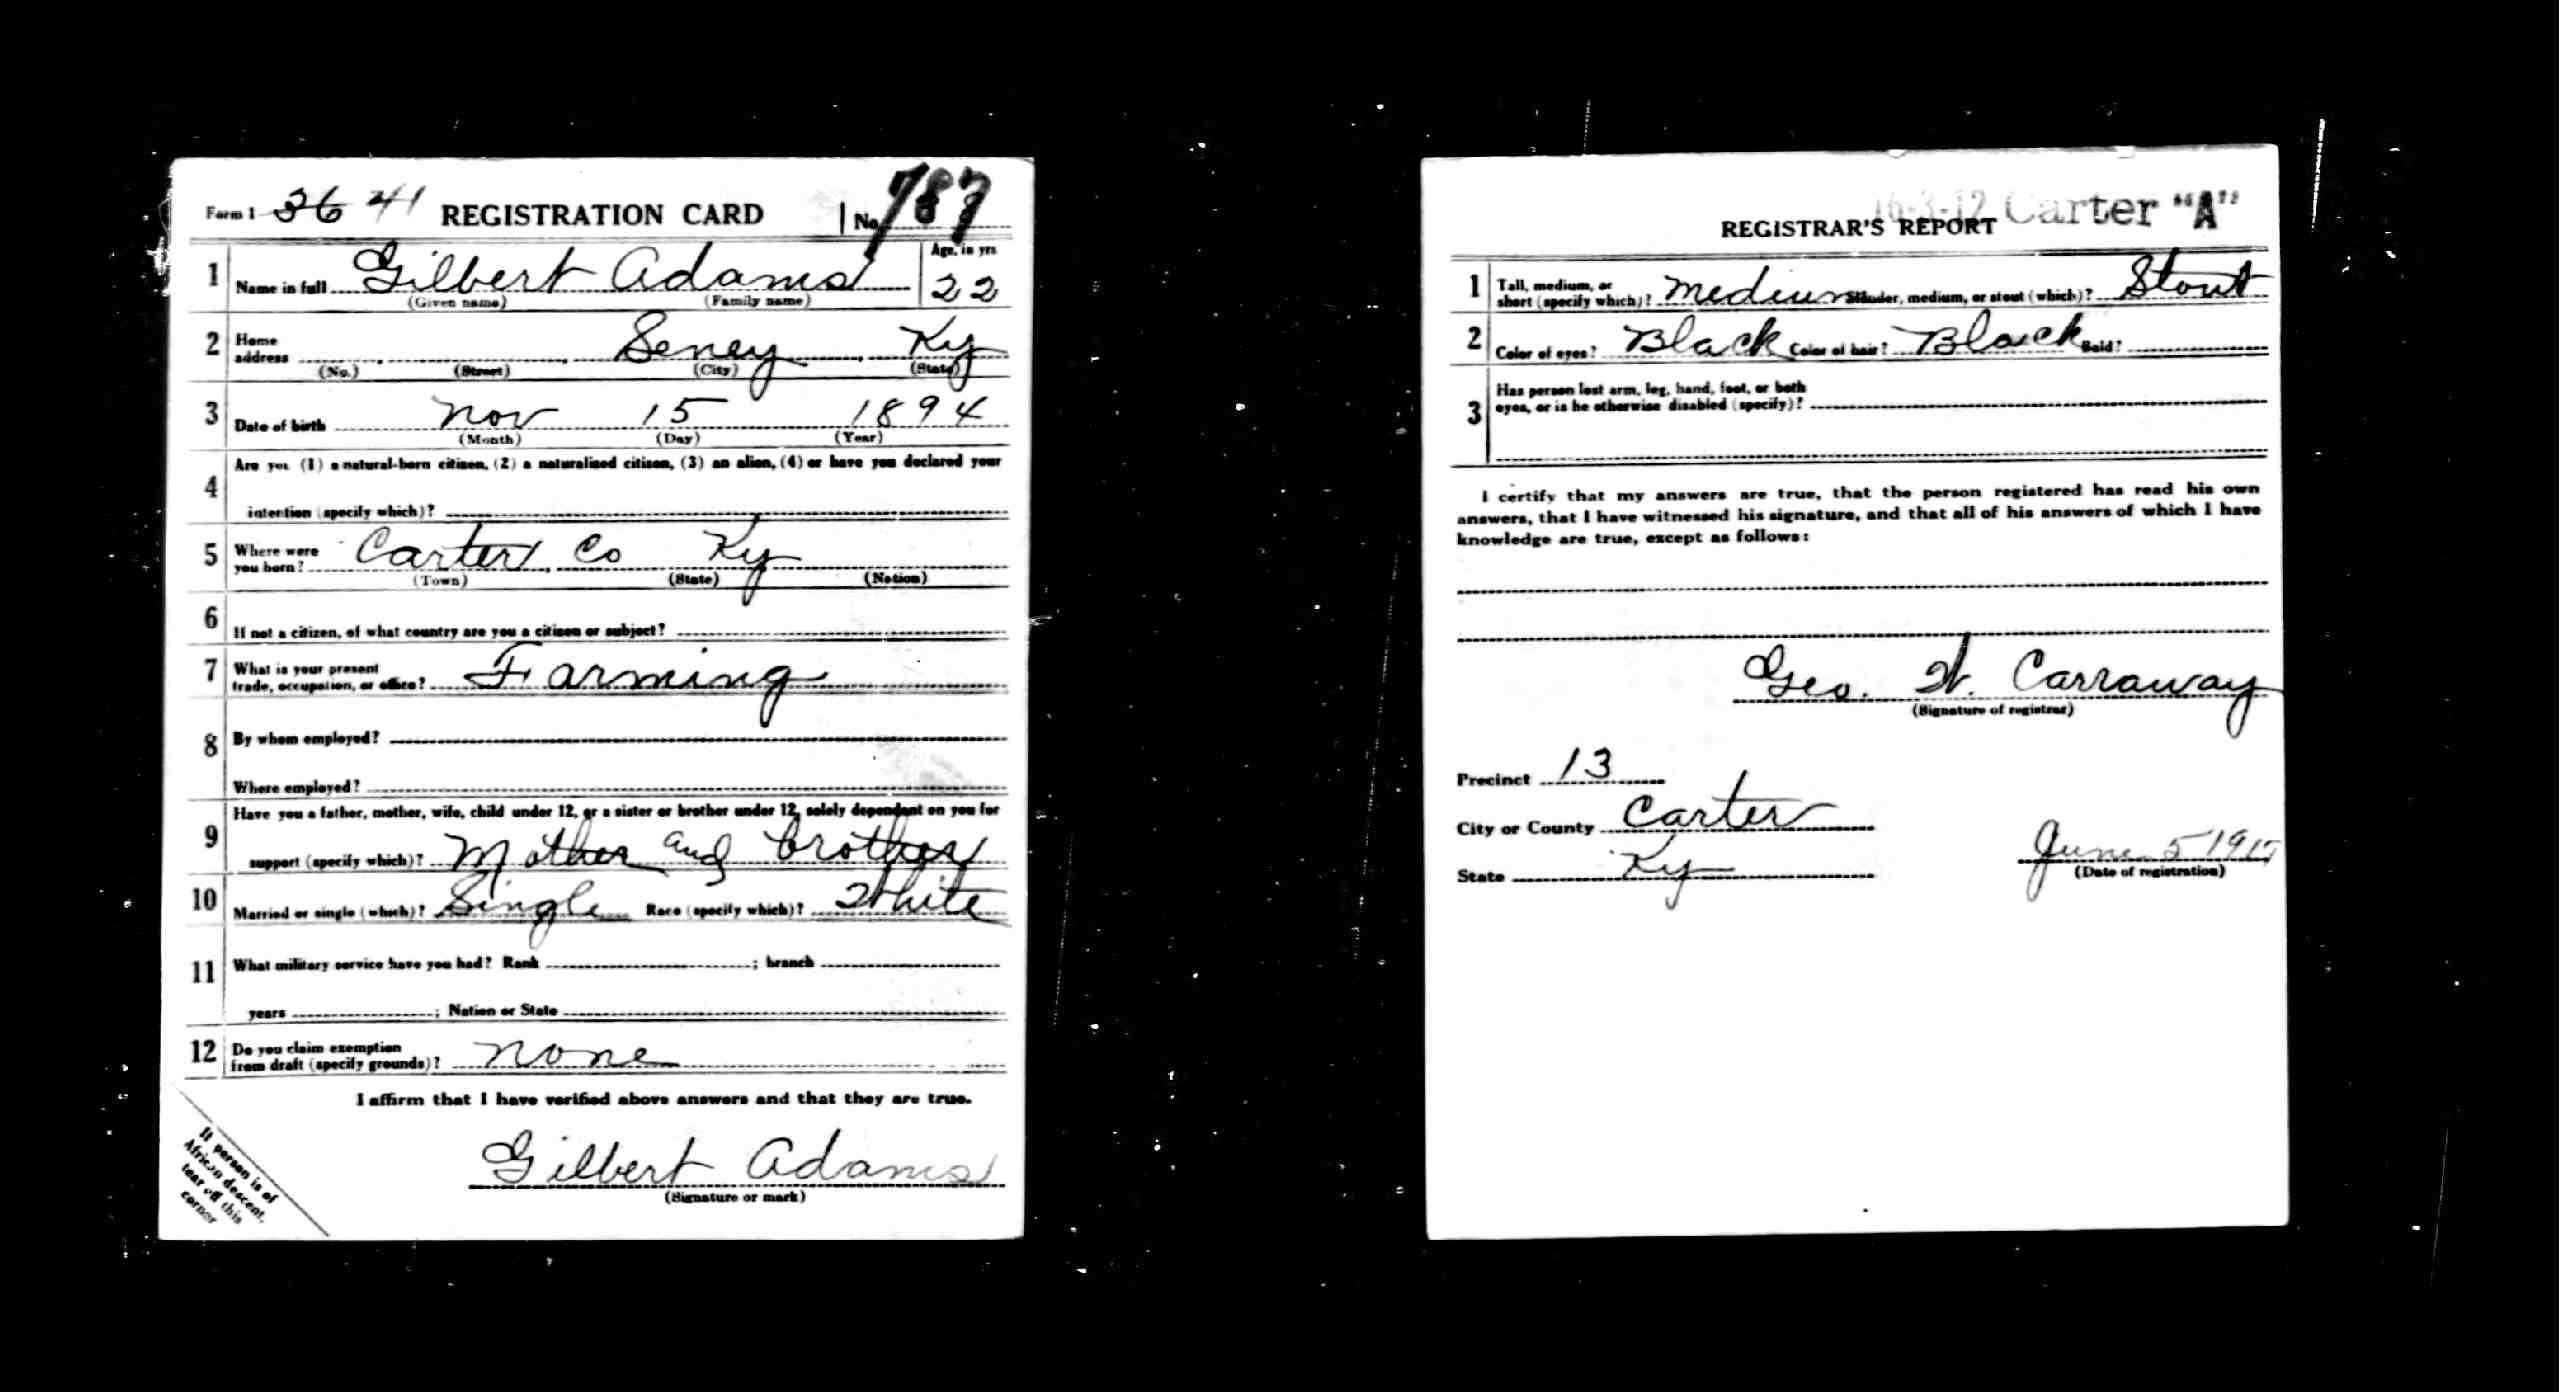 Form 1 36 41 REGISTRATION CARD No. 787
1 Name in full Gilbert Adams Age, in yrs 22
(Given name) (Family name)
2 Home address Seney Ky
(No.) (Street) (City) (State)
3 Date of birth Nov 15 1894
(Month) (Day) (Year)
4 Are you (1) a natural-born citizen, (2) a naturalized citizen, (3) an alien, (4) or have you declared your
intention (specify which)?
5 Where were you born? Carter Co Ky
(Town) (State) (Nation)
6 If not a citizen, of what country are you a citizen or subject?
7 What is your present trade, occupation, or office? Farming
8 By whom employed?
Where employed?
9 Have you a father, mother, wife, child under 12, or a sister or brother under 12, solely dependent on you for
support (specify which)? Mother and brother
10 Married or single (which)? Single Race (specify which)? White
11 What military service have you had? Rank ; branch
years ; Nation or State
12 Do you claim exemption from draft (specify grounds)? none
I affirm that I have verified above answers and that they are true.
Gilbert Adams
(Signature or mark)
If person is of
African descent,
tear off this
corner
16-3-12 Carter "A"
REGISTRAR'S REPORT
1 Tall, medium, or short (specify which)? Medium Slender, medium, or stout (which)? Stout
2 Color of eyes? Black Color of hair? Black Bald?
3 Has person lost arm, leg, hand, foot, or both
eyes, or is he otherwise disabled (specify)?
I certify that my answers are true, that the person registered has read his own
answers, that I have witnessed his signature, and that all of his answers of which I have
knowledge are true, except as follows:
Geo. W. Carraway
(Signature of registrar)
Precinct 13
City or County Carter
State Ky
June 5 1917
(Date of registration)